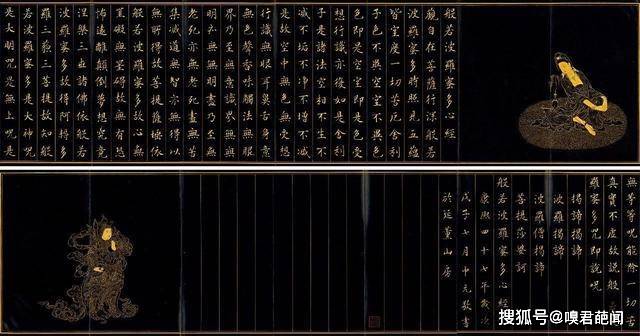 般若波羅蜜多心經
觀自在菩薩行深般若
波羅蜜多時照見五蘊
皆空度一切苦厄舍利
子色不異空空不異色
色即是空空即是色受
想行識亦復如是舍利
子是諸法空相不生不
滅不垢不淨不增不減
是故空中無色無受想
行識無眼耳鼻舌身意
無色聲香味觸法無眼
界乃至無意識界無無
明亦無無明盡乃至無
老死亦無老死盡無苦
集滅道無智亦無得以
無所得故菩提薩埵依
般若波羅蜜多故心無
罣礙無罣礙故無有恐
怖遠離顛倒夢想究竟
涅槃三世諸佛依般若
波羅蜜多故得阿耨多
羅三藐三菩提故知般
若波羅蜜多是大神咒
是大明咒是無上咒是
無等等咒能除一切苦
真實不虛故說般若波
羅蜜多咒即說咒曰
揭諦揭諦
波羅揭諦
波羅僧揭諦
菩提薩婆訶
般若波羅蜜多心經
康熙四十七年歲次
戊子七月中元敬書
於延薰山房
搜狐号@嗅君葩闻